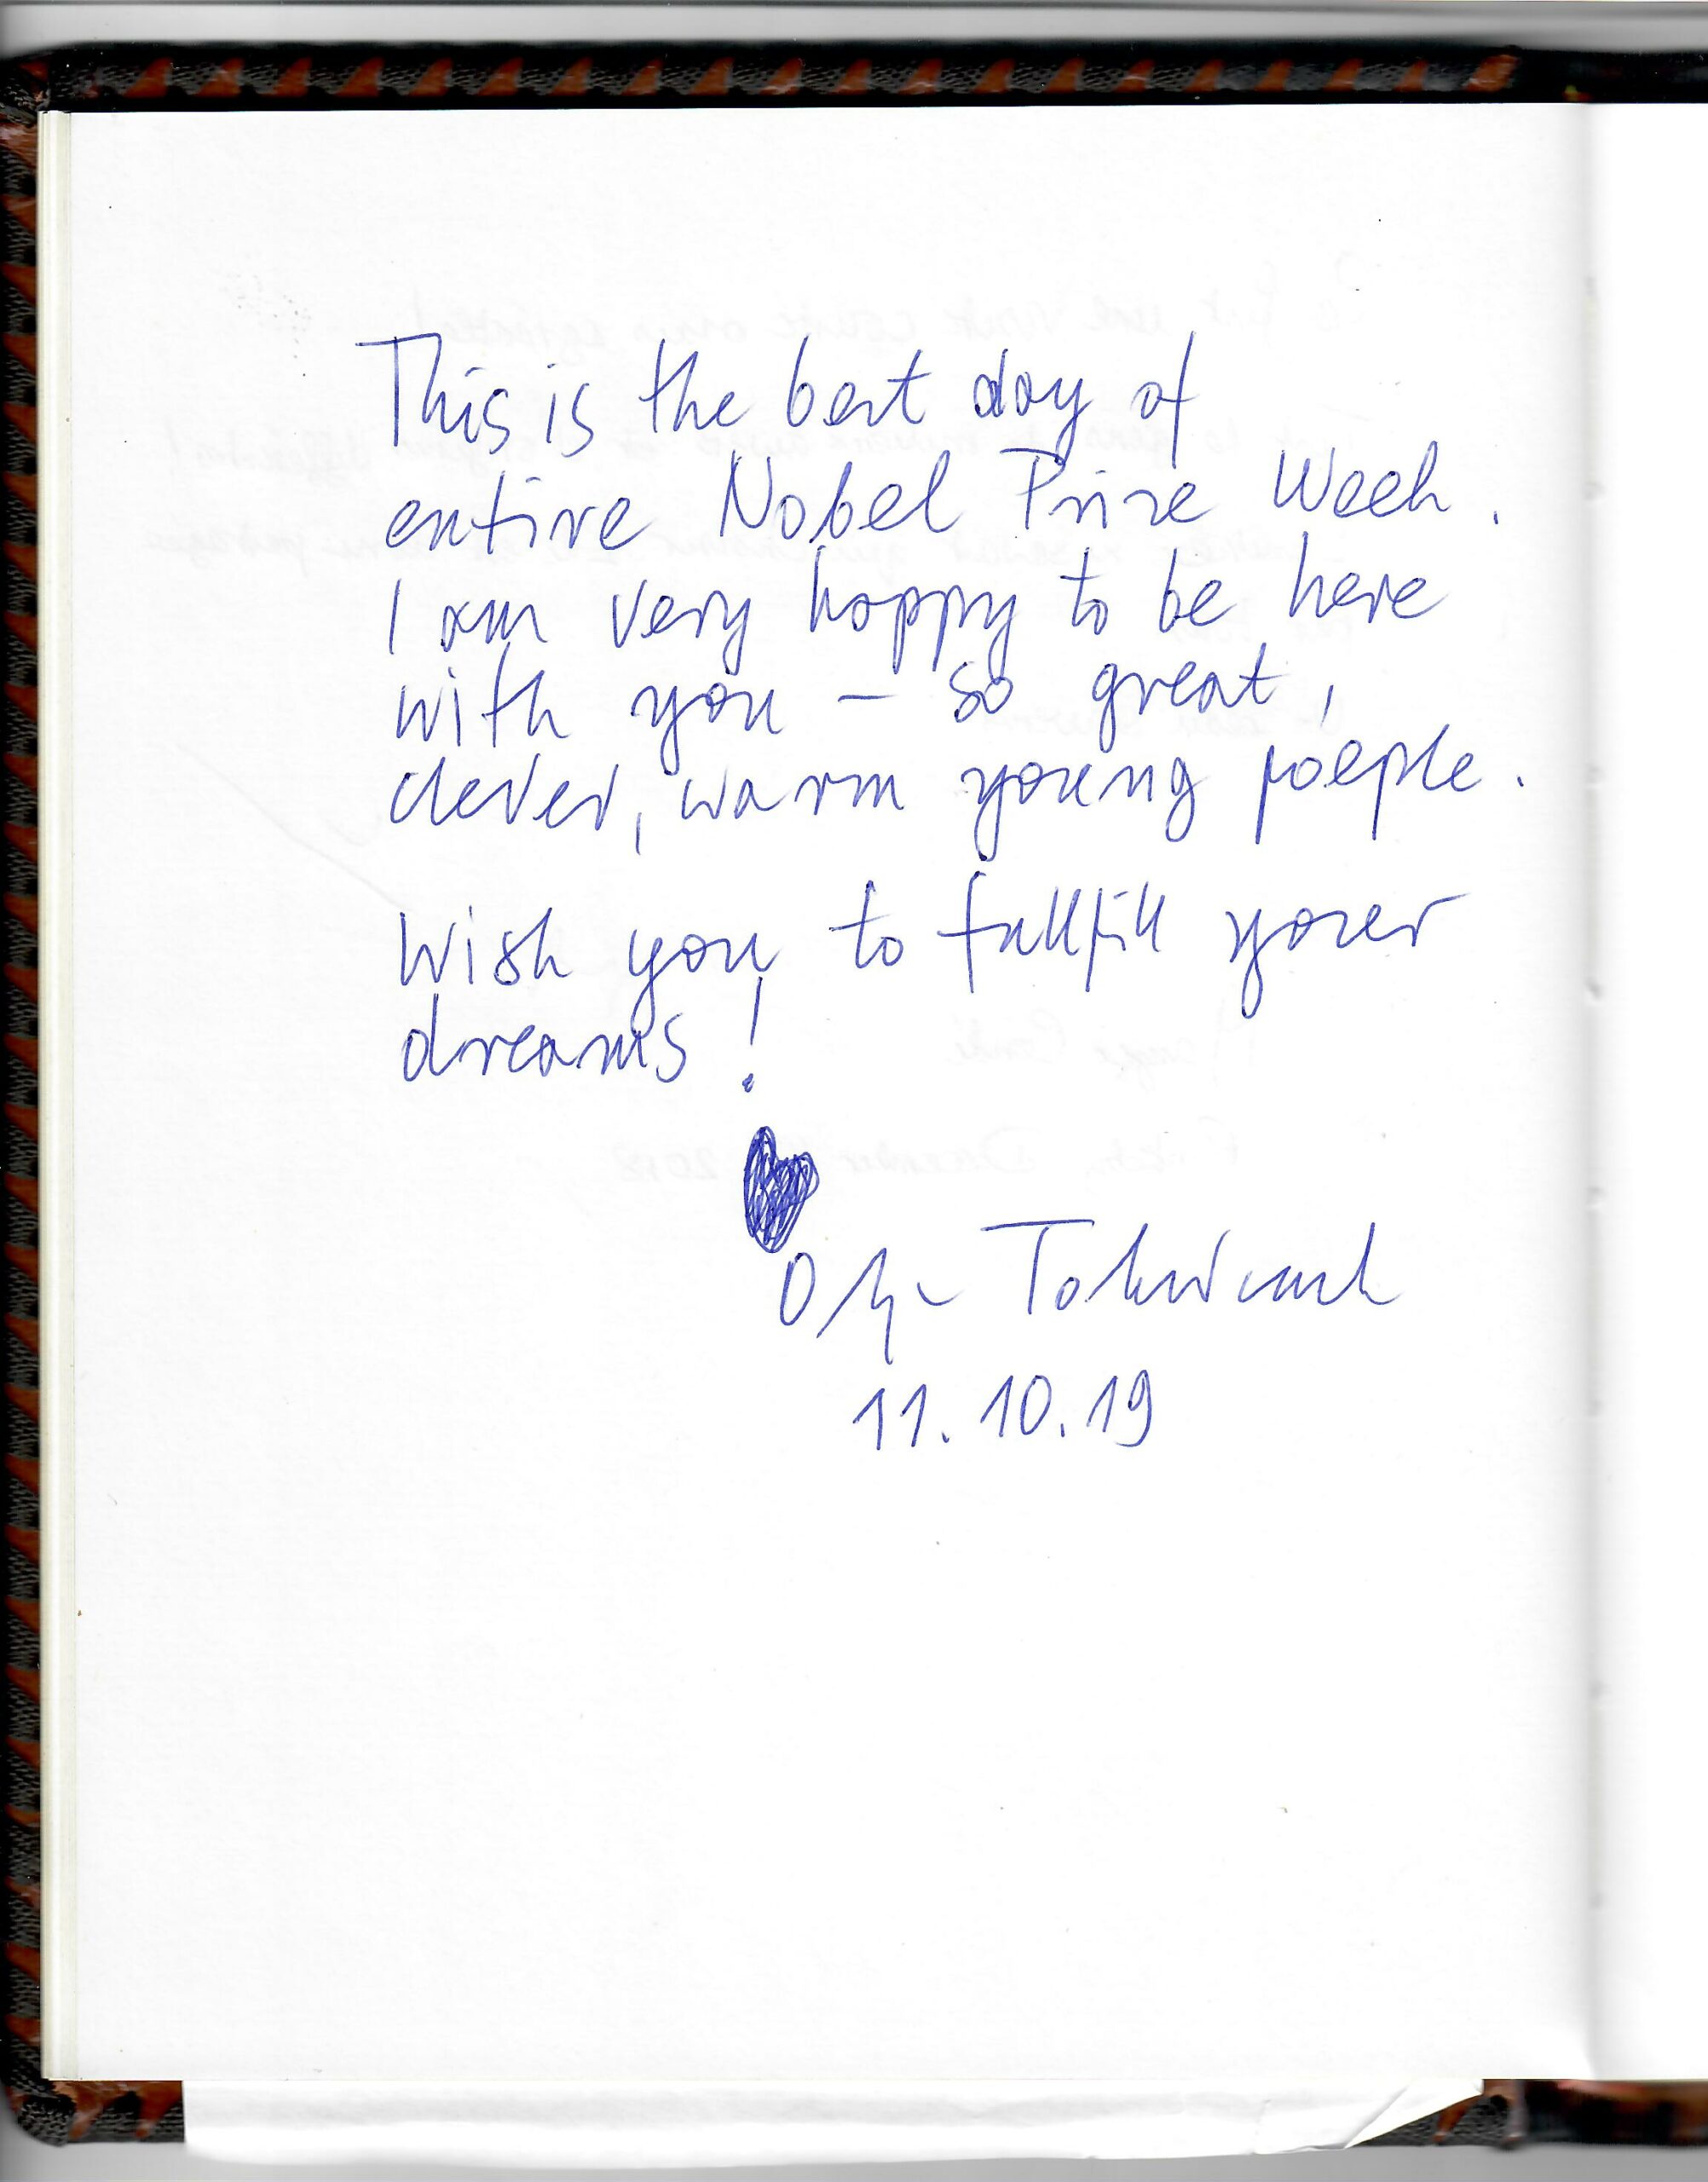 This is the best day of
entire Nobel Prize Week.
I am very happy to be here
with you – so great,
clever, warm young poeple.
Wish you to fullfill your
dreams!
Olga Tokarczuk
11.10.19